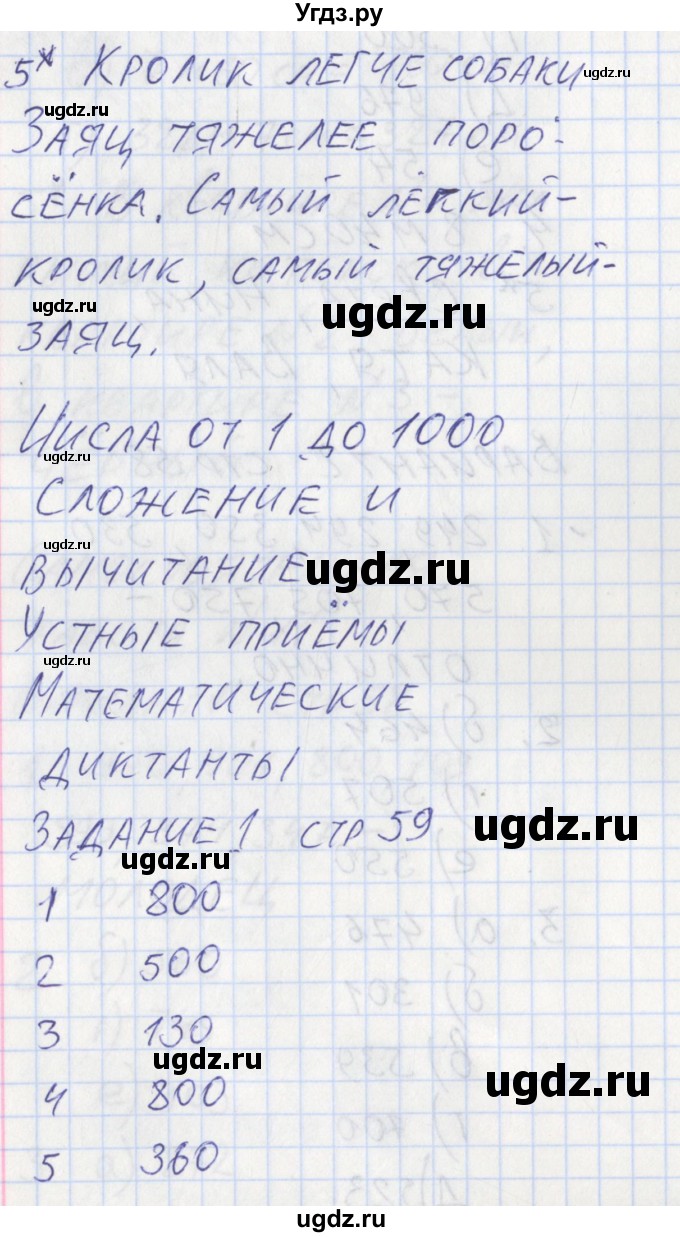 Угдз.ру
5* Кролик легче собаки
ugdz.ru
ugdz.ru
Заяц тяжелее поро-
ugdz.ru
сёнка. Самый лёгкий-
кролик, самый тяжелый-
ugdz.ru
ugdz.ru
заяц.
Числа от 1 до 1000
ugdz.ru
Сложение и
ugdz.ru
вычитание
ugdz.ru
Устные приёмы
ugdz.ru
Математические
диктанты
Задание 1 стр 59
ugdz.ru
ugdz.ru
1 800
2 500
3 130
ugdz.ru
4 800
ugdz.ru
5 360
ugdz.ru